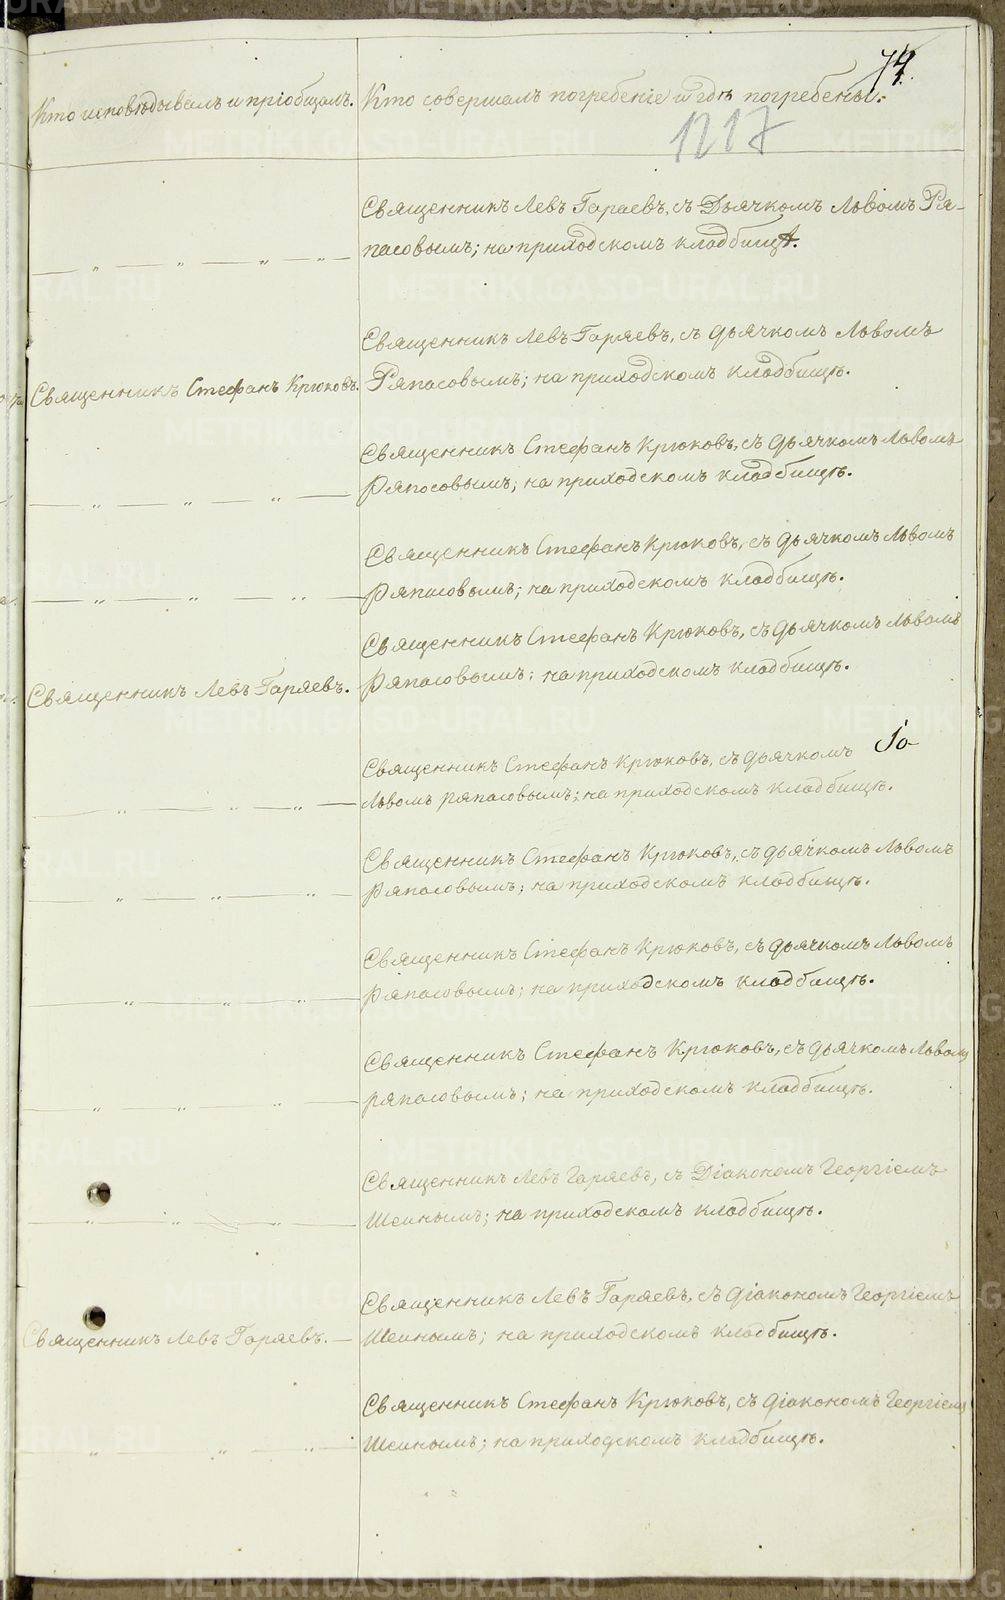 74.
Кто исповѣдывалъ и пріобщалъ.
Кто совершалъ погребеніе и гдѣ погребены.
1217
Священникъ Левъ Гараевъ, съ Дьячкомъ Львомъ Ря-
пасовымъ; на приходскомъ кладбищѣ.
— „ — „ — „ — „ —
Священникъ Стефанъ Крюковъ.
Священникъ Левъ Гаряевъ, съ дьячкомъ Львомъ
Ряпасовымъ; на приходскомъ кладбищѣ.
Священникъ Стефанъ Крюковъ, съ дьячкомъ Львомъ
Ряпосовымъ; на приходскомъ кладбищѣ.
— „ — „ — „ —
Священникъ Стефанъ Крюковъ, съ дьячкомъ Львомъ
Ряпасовымъ; на приходскомъ кладбищѣ.
— „ — „ — „ —
Священникъ Левъ Гаряевъ.
Священникъ Стефанъ Крюковъ, съ дьячкомъ Львомъ
Ряпасовымъ; на приходскомъ кладбищѣ.
Священникъ Стефанъ Крюковъ, съ дьячкомъ
Львомъ Ряпасовымъ; на приходскомъ кладбищѣ.
„ — „ — „ —
Священникъ Стефанъ Крюковъ, съ дьячкомъ Львомъ
Ряпасовымъ; на приходскомъ кладбищѣ.
— „ — „ — „ —
Священникъ Стефанъ Крюковъ, съ дьячкомъ Львомъ
Ряпасовымъ; на приходскомъ кладбищѣ.
— „ — „ — „ —
Священникъ Стефанъ Крюковъ, съ дьячкомъ Львомъ
Ряпасовымъ; на приходскомъ кладбищѣ.
— „ — „ — „ —
Священникъ Левъ Гаряевъ, съ Діакономъ Георгіемъ
Шеинымъ; на приходскомъ кладбищѣ.
— „ — „ — „ —
Священникъ Левъ Гаряевъ. —
Священникъ Левъ Гаряевъ, съ діакономъ Георгіемъ
Шеинымъ; на приходскомъ кладбищѣ.
Священникъ Стефанъ Крюковъ, съ діакономъ Георгіемъ
Шеинымъ; на приходскомъ кладбищѣ.
— „ — „ — „ —
METRIKI.GASO-URAL.RU